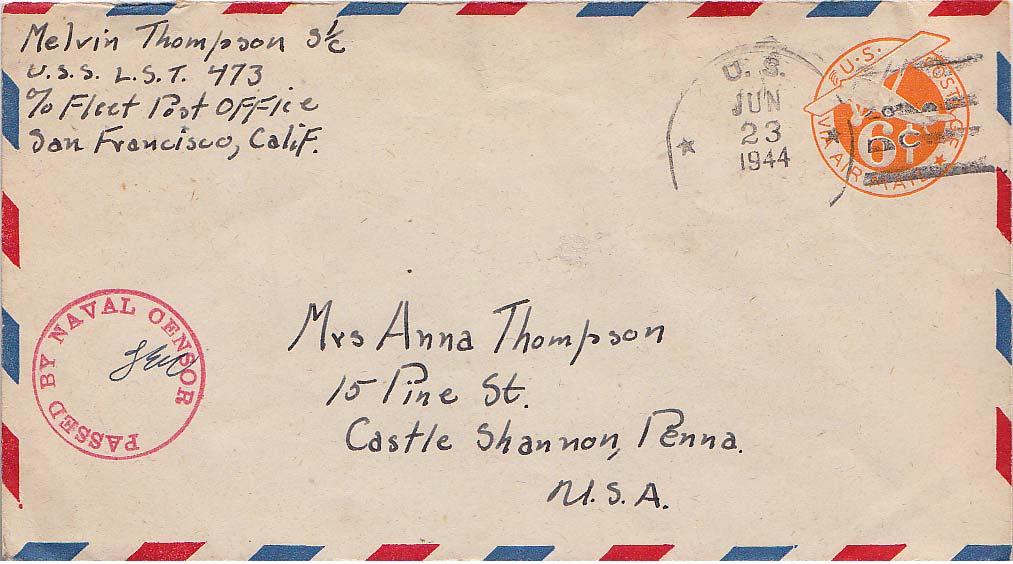 Melvin Thompson S1/c
U.S.S. L.S.T. 473
c/o Fleet Post Office
San Francisco, Calif.
U. S.
JUN
23
1944
U.S. POSTAGE
6¢
VIA AIR MAIL
PASSED BY NAVAL CENSOR
Mrs Anna Thompson
15 Pine St.
Castle Shannon, Penna.
U.S.A.